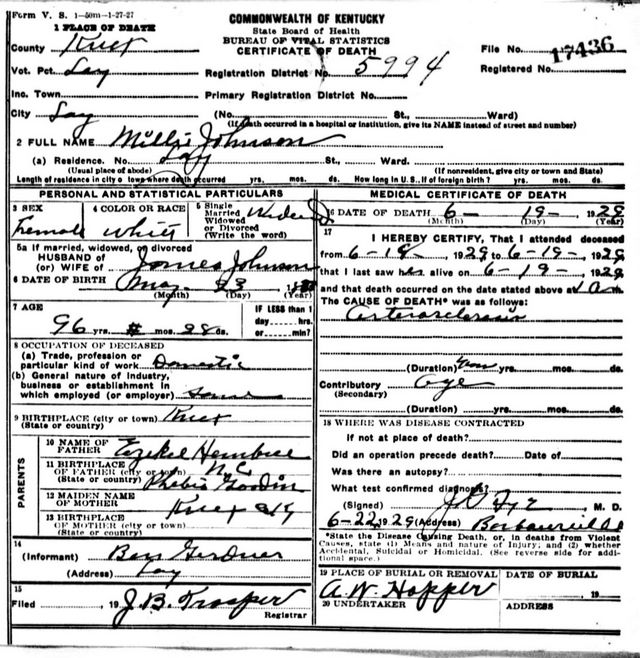 Form V. S. 1-50m-1-27-27
COMMONWEALTH OF KENTUCKY
State Board of Health
BUREAU OF VITAL STATISTICS
CERTIFICATE OF DEATH
1 PLACE OF DEATH
County Knox
File No. 17436
Vot. Pct. Lay
Registration District No. 5994
Registered No.
Inc. Town
Primary Registration District No.
City Lay
(No. St., Ward)
(If death occurred in a hospital or institution, give its NAME instead of street and number)
2 FULL NAME Millie Johnson
(a) Residence. No. Lay St., Ward.
(Usual place of abode) (If nonresident, give city or town and State)
Length of residence in city or town where death occurred yrs. mos. ds. How long in U.S., if of foreign birth? yrs. mos. ds.
PERSONAL AND STATISTICAL PARTICULARS
3 SEX Female
4 COLOR OR RACE White
5 Single Married Widowed or Divorced (Write the word) Widowed
5a If married, widowed, or divorced
HUSBAND of
(or) WIFE of James Johnson
6 DATE OF BIRTH May 23
(Month) (Day) (Year)
7 AGE
96 yrs. mos. 28 ds.
IF LESS than 1 day----hrs. or----min.
8 OCCUPATION OF DECEASED
(a) Trade, profession or particular kind of work Domestic
(b) General nature of Industry, business or establishment in which employed (or employer) Same
9 BIRTHPLACE (city or town) Knox
(State or country)
PARENTS
10 NAME OF FATHER Ezekiel Hembree
11 BIRTHPLACE OF FATHER (city or town) N.C.
(State or country)
12 MAIDEN NAME OF MOTHER Phebie Goodin
13 BIRTHPLACE OF MOTHER (city or town) Knox
(State or country)
14
(Informant) Ben Gerdner
(Address) Lay
15
Filed , 19 J. B. Prosper
Registrar
MEDICAL CERTIFICATE OF DEATH
16 DATE OF DEATH 6- 19- 1929
(Month) (Day) (Year)
17
I HEREBY CERTIFY, That I attended deceased
from 6-18, 1929 to 6-19-, 1929
that I last saw her alive on 6-19-, 1929
and that death occurred on the date stated above at 1 A m.
The CAUSE OF DEATH* was as follows:
Arteriosclerosis
(Duration) yrs. mos. ds.
Contributory Age
(Secondary)
(Duration) yrs. mos. ds.
18 WHERE WAS DISEASE CONTRACTED
if not at place of death?
Did an operation precede death? Date of
Was there an autopsy?
What test confirmed diagnosis?
(Signed) M. D.
6-22 1929 (Address)
*State the Disease Causing Death, or, in deaths from Violent Causes, state (1) Means and nature of Injury; and (2) whether Accidental, Suicidal or Homicidal. (See reverse side for additional space.)
19 PLACE OF BURIAL OR REMOVAL
DATE OF BURIAL
19
A. W. Hopper
20 UNDERTAKER
ADDRESS